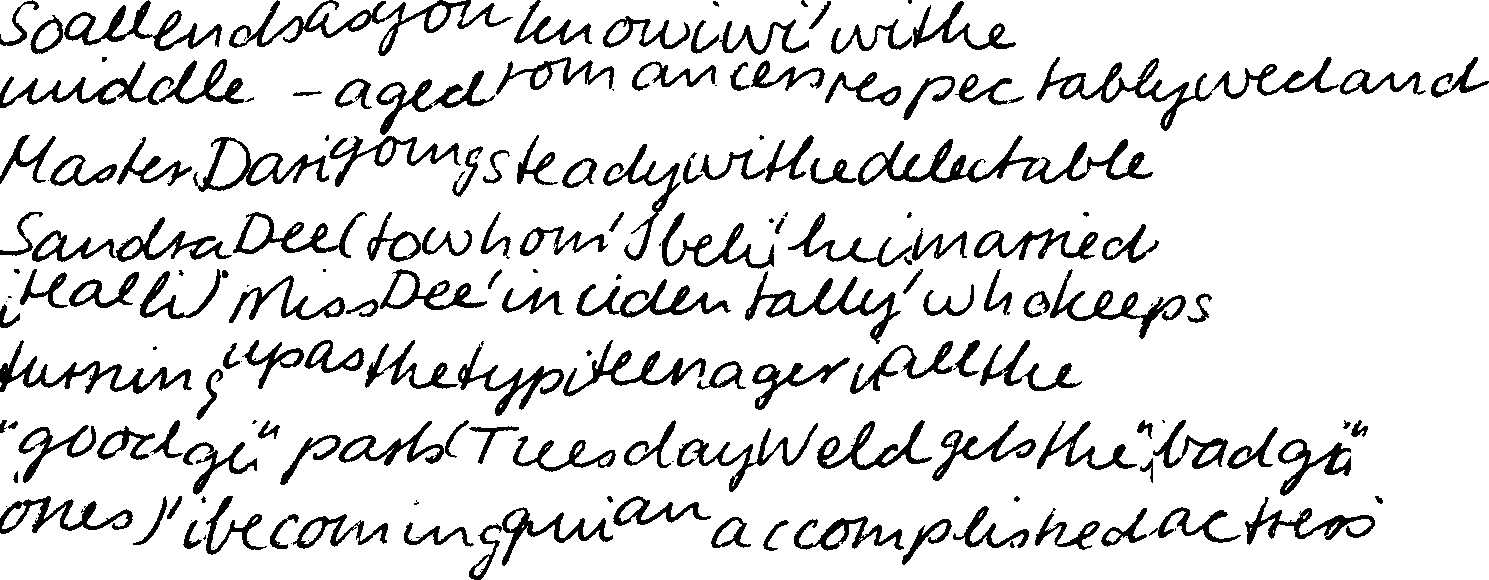 So all ends as you know i wi' withe
middle - aged romancers respectably wed and
Master Dari going steady withe delectable
Sandra Dee (to whom' I beli' he i married
i reall i)' Miss Dee' incidentally' who keeps
turning up as the typi teenager i all the
"good gi" parts (Tuesday Weld gets the "bad gi"
ones)' i becoming qui an accomplished actress